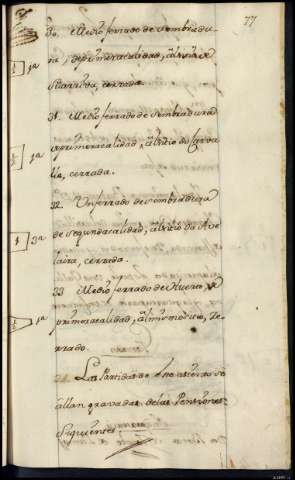 77
30. Medio ferrado de Sembradu
ra, de primera calidad,
cerrada.
1/2 1ª
31. Medio ferrado de Sembradura
de primera calidad, al sitio do Carva
cerrada.
1/2 1ª
32. Un ferrado de Sembradura
de segunda calidad, al sitio da
laira, cerrada.
1
33. Medio ferrado de Huerto, de
primera calidad, al mismo sitio, ce
rrado.
1ª
Las Partidas de dho asiento se
allan gravadas de las Pensiones
Siguientes.